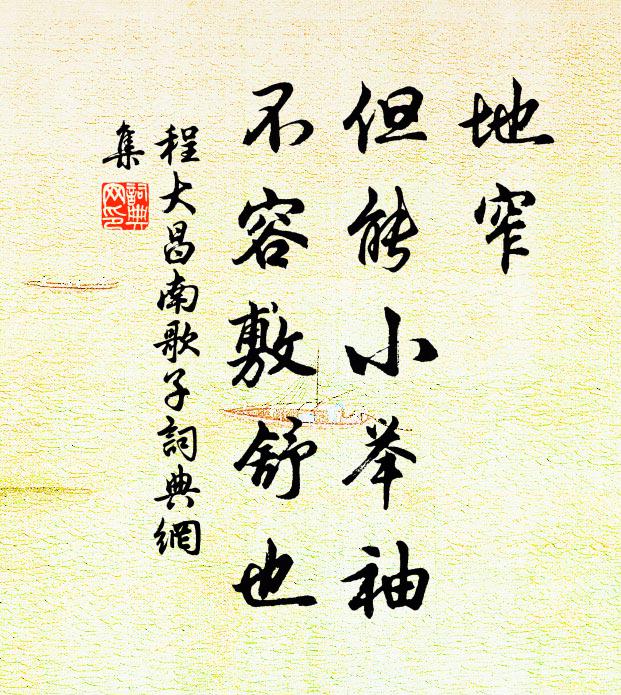 地窄
但能小举袖
不容敷舒也
程大昌南歌子詞典網
集
詞典
网印